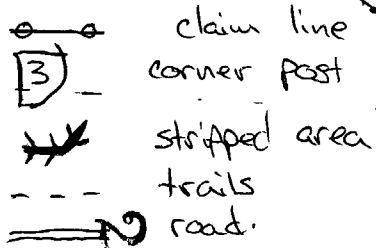 claim line
3 corner post
stripped area
trails
road.